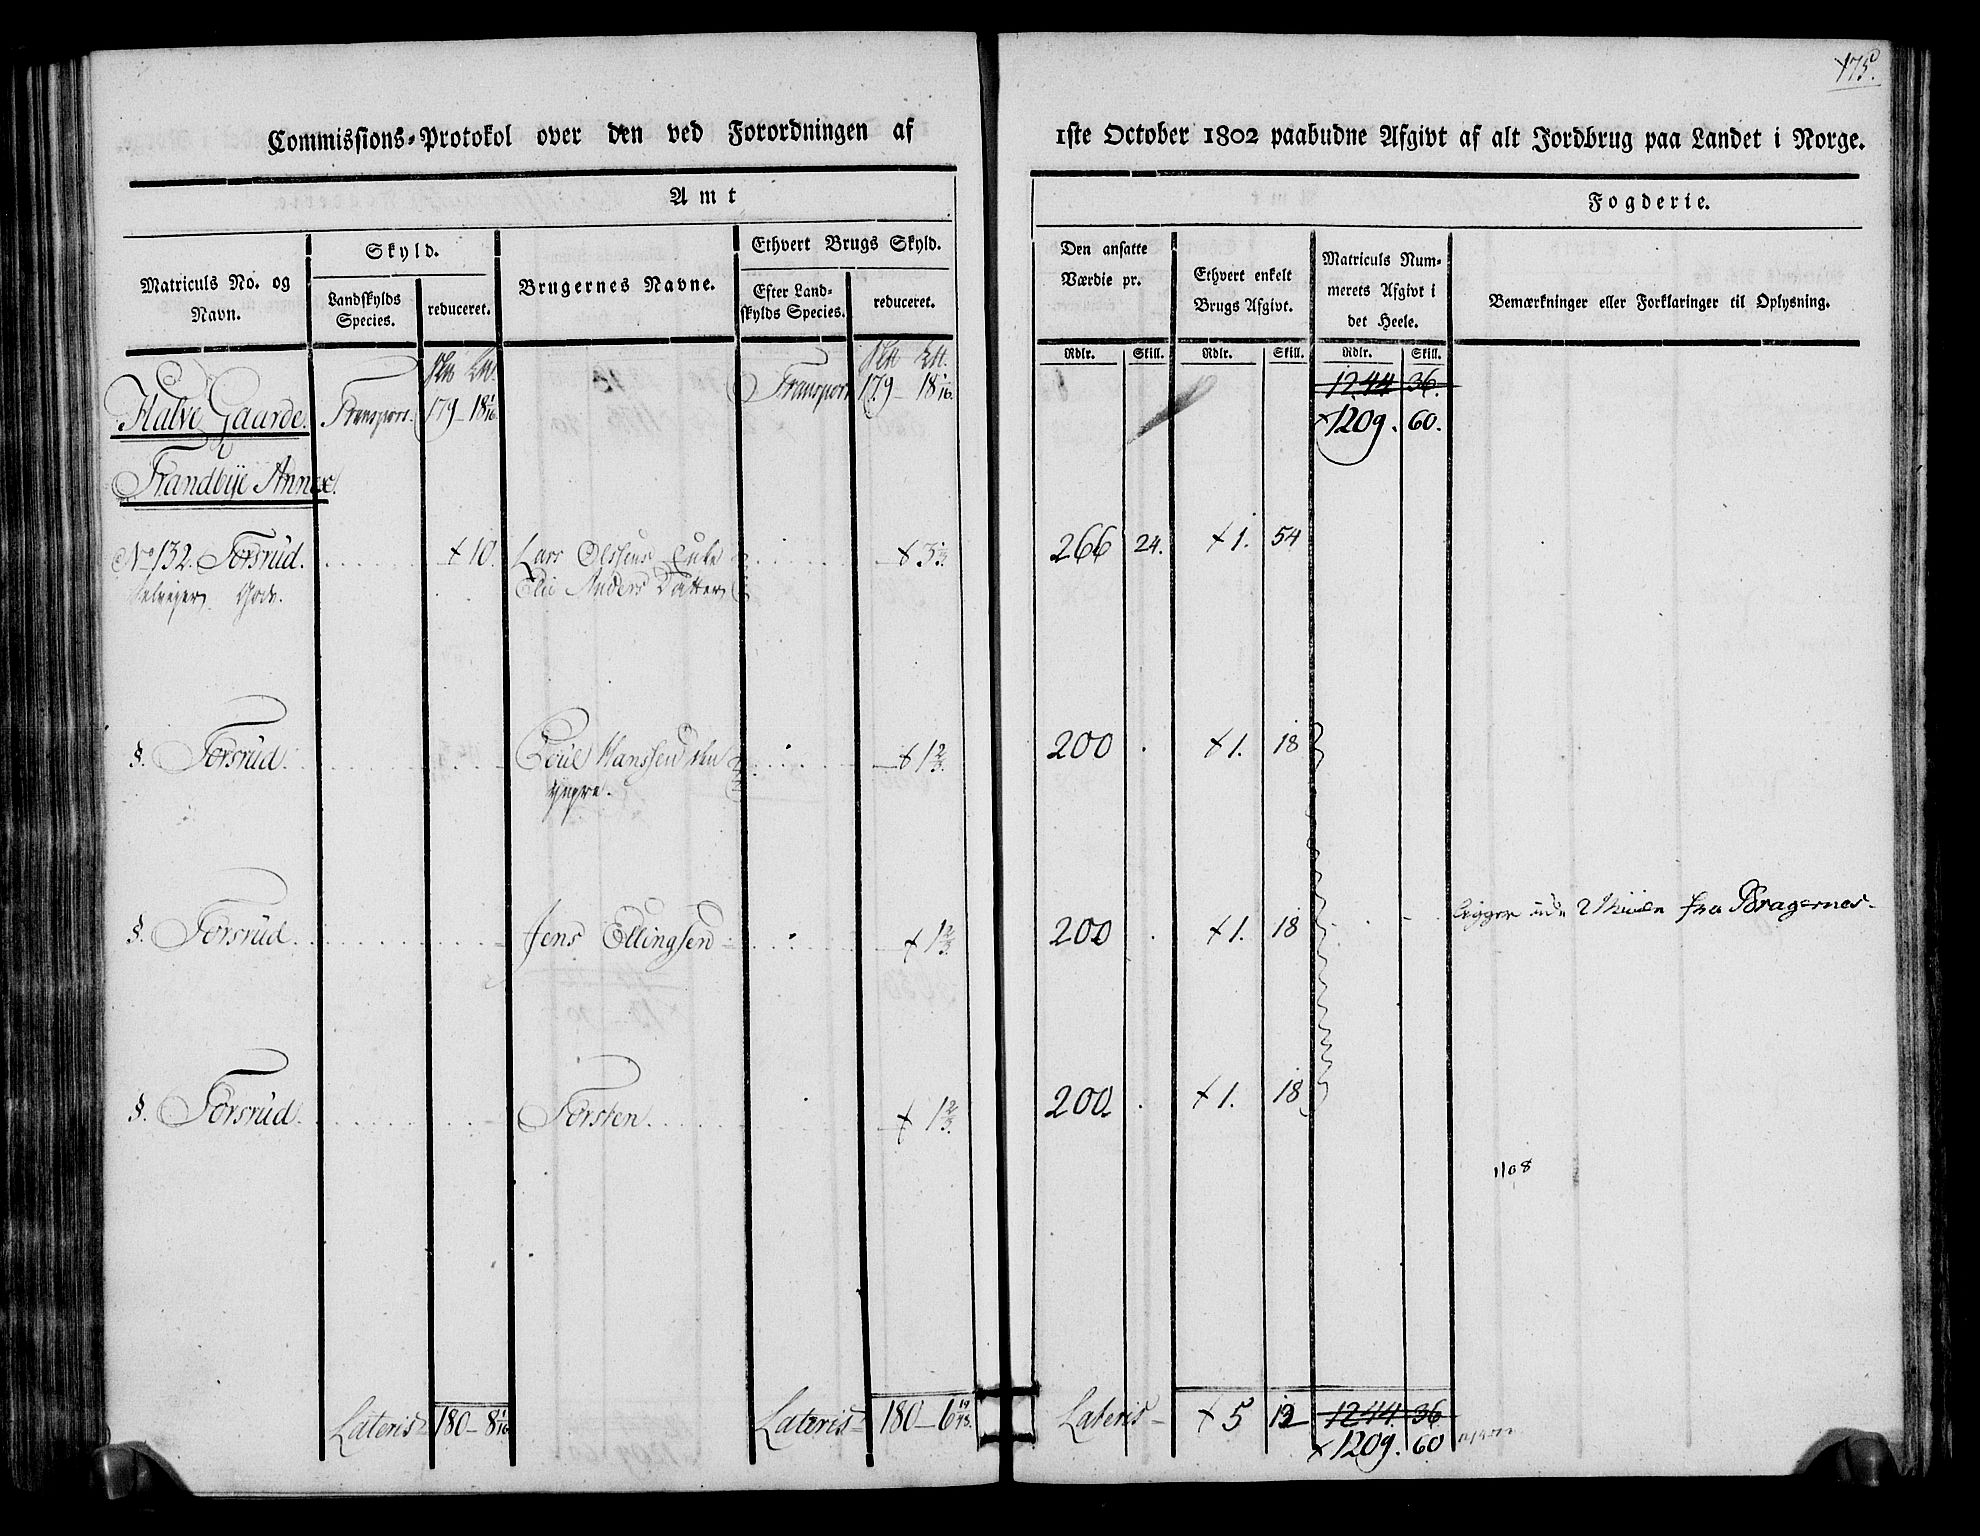 175.
Commissions-Protokol over den ved Forordningen af
1ste October 1802 paabudne Afgivt af alt Jordbrug paa Landet i Norge.
Amt
Fogderie.
Matriculs No. og Navn.
Skyld.
Landskylds Species.
reduceret.
Brugernes Navne.
Ethvert Brugs Skyld.
Efter Landskylds Species.
reduceret.
Den ansatte Værdie pr.
Ethvert enkelt Brugs Afgivt.
Matriculs Nummerets Afgivt i det Heele.
Bemærkninger eller Forklaringer til Oplysning.
Rdlr. Skill. Rdlr. Skill. Rdlr. Skill.
Halve Gaarde. Transport. 179 - 18 1/16. Transport 179 - 18 1/16. 1244 36.
+1209. 60.
Frandbye Annex.
No 132. Forsrud. + 10. Lars Olssens Enke + 3 1/3. 266 24. + 1. 54
Selveier Gods. Elie Anders Datter
§. Forsrud. Poul Hanssen den + 1 2/3. 200 . + 1. 18
yngre.
§. Forsrud. Jens Ellingsen + 1 2/3. 200 . + 1. 18 ligger 2 fra Bragernes.
§. Forsrud. Torsten. + 1 2/3. 200. . + 1. 18
1108
Lateris 180 - 8 1/16 Lateris 180 - 6 19/48. Lateris + 5 12 1244. 36
+ 1209. 60